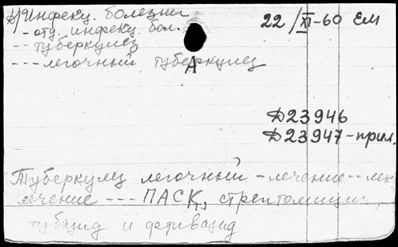 Инфекц. болезни
22/XI-60 ЕМ
-- отд. инфекц. бол.
-- туберкулез
--- легочный туберкулез
А
Д23946
Д23947-прил.
Туберкулез легочный - лечение -- лек.
лечение --- ПАСК, стрептомицин,
тубазид и фтивазид